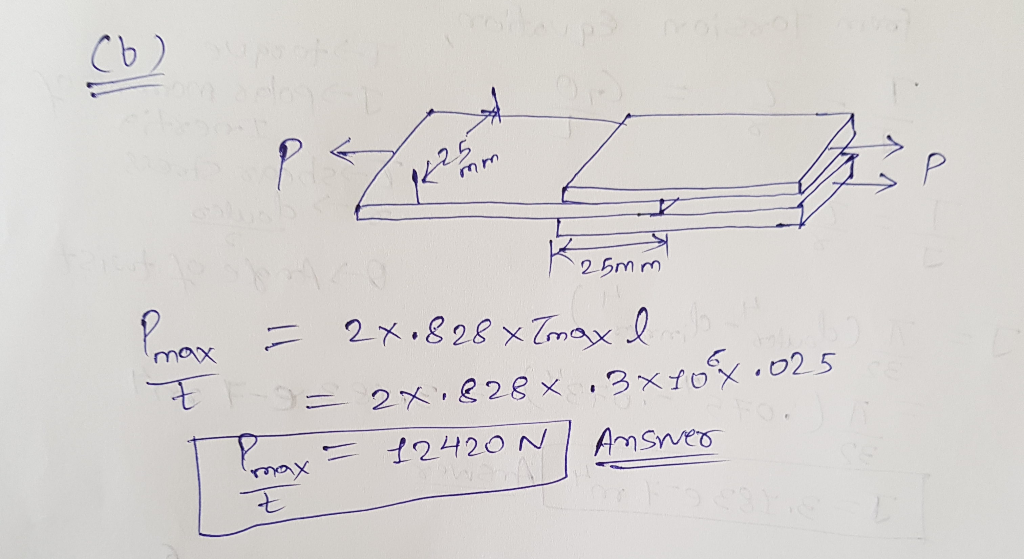 (b)
P
25 mm
P
25mm
Pmax/t = 2x.828 x τmax l
= 2x.828 x .3x10⁶x .025
Pmax/t = 12420 N Answer